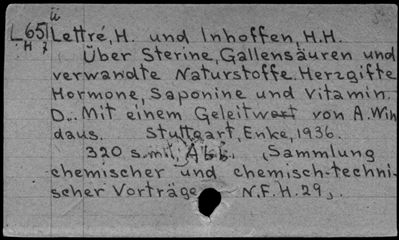 ü
L65 Lettré, H. und Inhoffen, H.H.
H 7 Über Sterine, Gallensäuren und
verwandte Naturstoffe. Herzgifte
Hormone, Saponine und Vitamin
D.. Mit einem Geleitwort von A. Win
daus. Stuttgart, Enke, 1936.
320 S. mit Abb. (Sammlung
chemischer und chemisch-techni-
scher Vorträge N.F.H. 29).